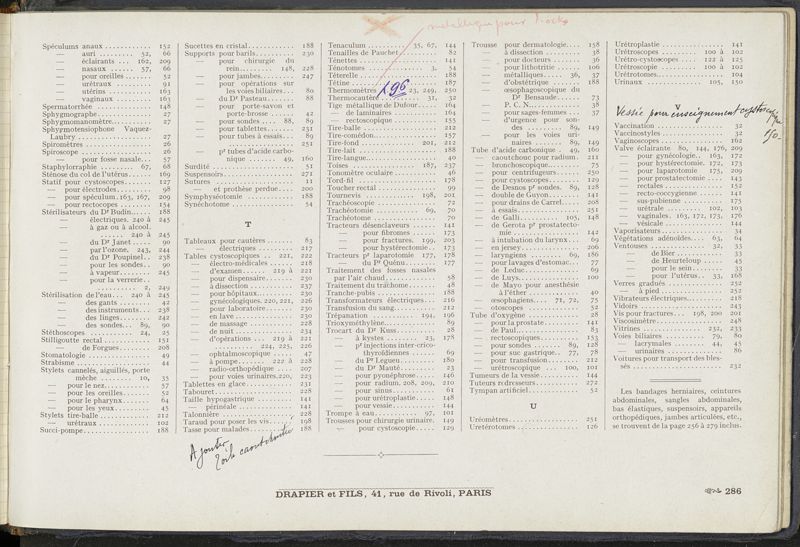 métallique pour
Spéculums anaux ............ 152
— auri ........ 52, 66
— éclairants ... 162, 209
— nasaux ..... 57, 66
— pour oreilles ....... 52
— urétraux ......... 91
— utérins .......... 163
— vaginaux ........ 163
Spermatorrhée ............ 148
Sphygmographe ............ 27
Sphygmomanomètre......... 27
Sphyrmotensiophone Vaquez-
Laubry ................. 27
Spiromètres ............... 26
Spiroscope ............... 26
— pour fosse nasale... 57
Staphylorraphie ........ 67, 68
Sténose du col de l'utérus..... 169
Statif pour cystoscopes....... 127
— pour électrodes........ 98
— pour spéculum. 163, 167, 209
— pour rectoscopes ..... 154
Stérilisateurs du Dr Budin..... 188
— électriques. 240 à 245
— à gaz ou à alcool.
........ 240 à 245
— du Dr Janet ..... 90
— par l'ozone, 243, 244
— du Dr Poupinel.. 238
— pour les sondes.. 90
— à vapeur........ 245
— pour la verrerie..
............ 2, 249
Stérilisation de l'eau... 240 à 245
— des gants ....... 42
— des instruments .. 238
— des linges ....... 242
— des sondes... 89, 90
Stéthoscopes .......... 24, 45
Stilligoutte rectal ........... 151
— de Forgues........ 208
Stomatologie .............. 49
Strabisme ................ 44
Stylets cannelés, aiguillés, porte
mèche .......... 10, 35
— pour le nez ........... 57
— pour les oreilles........ 52
— pour le pharynx....... 64
— pour les yeux......... 45
Stylets tire-balle ........... 212
— urétraux ........... 102
Succi-pompe.............. 188
Sucettes en cristal........... 188
Supports pour barils......... 230
— pour chirurgie du
rein........ 148, 228
— pour jambes........ 247
— pour opérations sur
les voies biliaires... 80
— du Dr Pasteau....... 88
— pour porte-savon et
porte-brosse ..... 42
— pour sondes ... 88, 89
— pour tablettes....... 231
— pour tubes à essais... 89
251
— pr tubes d'acide carbo-
nique ....... 49, 160
Surdité .................. 51
Suspensoirs............... 271
Sutures .................. 11
— et prothèse perdue..... 200
Symphyséotomie .......... 188
Synéchotome ............. 54
T
Tableaux pour cautères....... 83
— électriques........ 217
Tables cystoscopiques .. 221, 222
— électro-médicales ..... 218
— d'examen..... 219 à 221
— pour dispensaire...... 230
— à dissection ......... 237
— pour hôpitaux........ 230
— gynécologiques, 220, 221, 226
— pour laboratoire...... 230
— en lave ............ 230
— de massage ......... 228
— de nuit ............. 234
— d'opérations .. 219 à 221
........ 224, 225, 226
— ophtalmoscopique .... 47
— à pompe..... 222 à 228
— radio-orthopédique ... 207
— pour voies urinaires.220, 223
Tablettes en glace........... 231
Tabouret................. 228
Taille hypogastrique ........ 141
— périnéale ............ 141
Talonnière ............... 228
Taraud pour poser les vis..... 198
Tasse pour malades......... 188
Ajouter
Toile caoutchoutée
Tenaculum ......... 35, 67, 144
Tenailles de Pauchet......... 82
Ténettes ................. 141
Ténotomes ............. 3, 54
Téterelle ................. 188
Tétine ................... 187
Thermomètres 196 23, 249, 250
Thermocautère ......... 31, 32
Tige métallique de Dufour..... 164
— de laminaires .......... 164
— rectoscopique ......... 155
Tire-balle ................ 212
Tire-comédon.............. 157
Tire-fond ............ 201, 212
Tire-lait .................. 188
Tire-langue............... 40
Toises ............. 187, 237
Tonomètre oculaire ......... 46
Tord-fil .................. 178
Toucher rectal ............. 99
Tournevis .......... 198, 201
Trachéoscopie ............. 72
Trachéotomie ......... 69, 70
Trachéotome ............. 70
Tracteurs désenclaveurs ..... 141
— pour fibromes...... 173
— pour fractures.. 199, 203
— pour hystérectomie.. 173
Tracteurs pr laparotomie 177, 178
— du Pr Quénu....... 177
Traitement des fosses nasales
par l'air chaud............. 58
Traitement du trachome...... 48
Tranche-pubis ............. 188
Transformateurs électriques... 216
Transfusion du sang......... 212
Trépanation ......... 194, 196
Trioxyméthylène........... 89
Trocart du Dr Kuss.......... 28
— à kystes ..... 23, 178
— pr injections inter-crico-
thyroïdiennes ........ 69
— du Pr Legueu......... 180
— du Dr Mauté......... 23
— pour pyonéphrose..... 147
— pour radium, 208, 209, 210
— pour sinus........... 61
— pour urétroplastie..... 148
— pour vessie.......... 144
Trompe à eau.......... 97, 101
Trousses pour chirurgie urinaire. 149
— pour cystoscopie ..... 129
Trousse pour dermatologie.... 158
— à dissection ........ 38
— pour docteurs ....... 36
— pour lithotritie ...... 106
— métalliques...... 36, 37
— d'obstétrique ....... 188
— œsophagoscopique du
Dr Bensaude....... 73
— P. C. N............. 38
— pour sages-femmes ... 37
— d'urgence pour son-
des ......... 89, 149
— pour les voies uri-
naires ....... 89, 149
Tube d'acide carbonique . 49, 160
— caoutchouc pour radium. 211
— bronchoscopique........ 75
— pour centrifugeurs ..... 250
— pour cystoscopes....... 129
— de Desnos pr sondes. 89, 128
— double de Guyon....... 141
— pour drains de Carrel.... 208
— à essais.............. 251
— de Galli........ 105, 148
— de Gerota pr prostatecto-
mie ................ 142
— à intubation du larynx.... 69
— en jersey............. 206
— laryngiens ....... 69, 186
— pour lavages d'estomac... 77
— de Leduc............. 69
— de Luys............. 100
— de Mayo pour anesthésie
à l'éther ............ 40
— œsophagiens.... 71, 72, 75
— otoscopes ............ 52
Tube d'oxygène ............ 28
— pour la prostate........ 141
— de Paul.............. 83
— rectoscopiques......... 153
— pour sondes ...... 89, 128
— pour suc gastrique.. 77, 78
— pour transfusion........ 212
— urétroscopique ... 100, 101
Tumeurs de la vessie........ 144
Tuteurs redresseurs......... 272
Tympan artificiel........... 52
U
Uréomètres............... 251
Uretérotomes ............. 126
Urétroplastie .............. 141
Urétroscopes ...... 100 à 102
Urétro-cystoscopes... 122 à 125
Urétroscopie ....... 100 à 102
Urétrotomes............... 104
Urinaux ............ 105, 150
V
Vessie pour enseignement cystosc
Vaccination ............... 32
Vaccinostyles ............. 32
Vaginoscopes ............. 162
Valve éclairante 80, 144, 176, 209
— pour gynécologie.. 163, 172
— pour hystérectomie. 172, 173
— pour laparotomie 175, 209
— pour prostatectomie..... 143
— rectales ............. 152
— recto-coccygienne ..... 141
— sus-pubienne ......... 175
— urétrale ........ 102, 103
— vaginales. 163, 172, 173, 176
— vésicale ............. 144
Vaporisateurs ............. 34
Végétations adénoïdes.... 63, 64
Ventouses ............ 32, 33
— de Bier............. 33
— de Heurteloup ....... 45
— pour le sein......... 33
— pour l'utérus.... 33, 168
Verres gradués ............ 252
— à pied .............. 252
Vibrateurs électriques........ 218
Vidoirs .................. 243
Vis pour fractures... 198, 200, 201
Viscosimètre .............. 248
Vitrines ............ 232, 233
Voies biliaires .......... 79, 80
— lacrymales ....... 44, 45
— urinaires .......... 86
Voitures pour transport des bles-
sés .................. 232
Les bandages herniaires, ceintures
abdominales, sangles abdominales,
bas élastiques, suspensoirs, appareils
orthopédiques, jambes articulées, etc.,
se trouvent de la page 256 à 279 inclus.
DRAPIER et FILS, 41, rue de Rivoli, PARIS
286